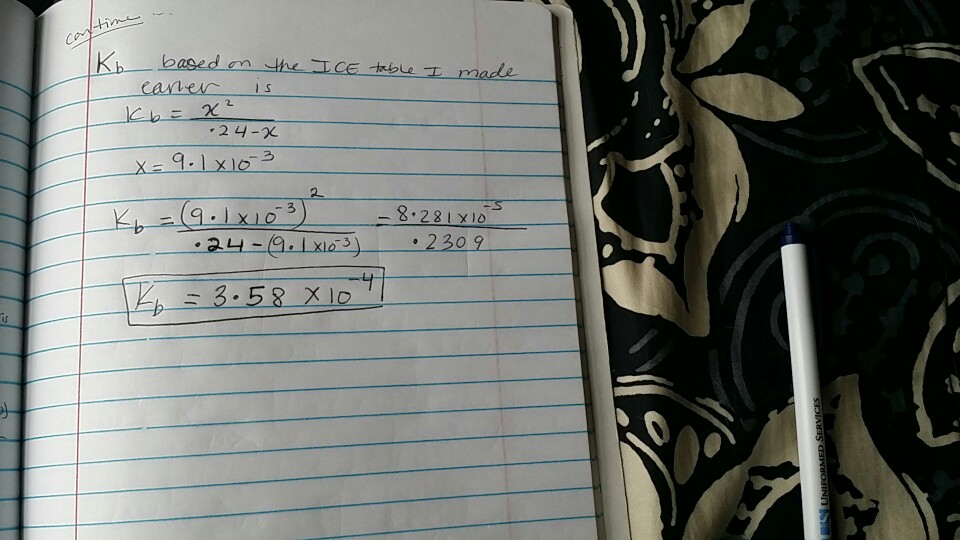 continue ...
Kb based on the ICE table I made
earlier is
Kb = x² / .24-x
x = 9.1 x 10⁻³
Kb = (9.1 x 10⁻³)² / .24 - (9.1 x 10⁻³) = 8.281 x 10⁻⁵ / .2309
Kb = 3.58 x 10⁻⁴
UNIFORMED SERVICES